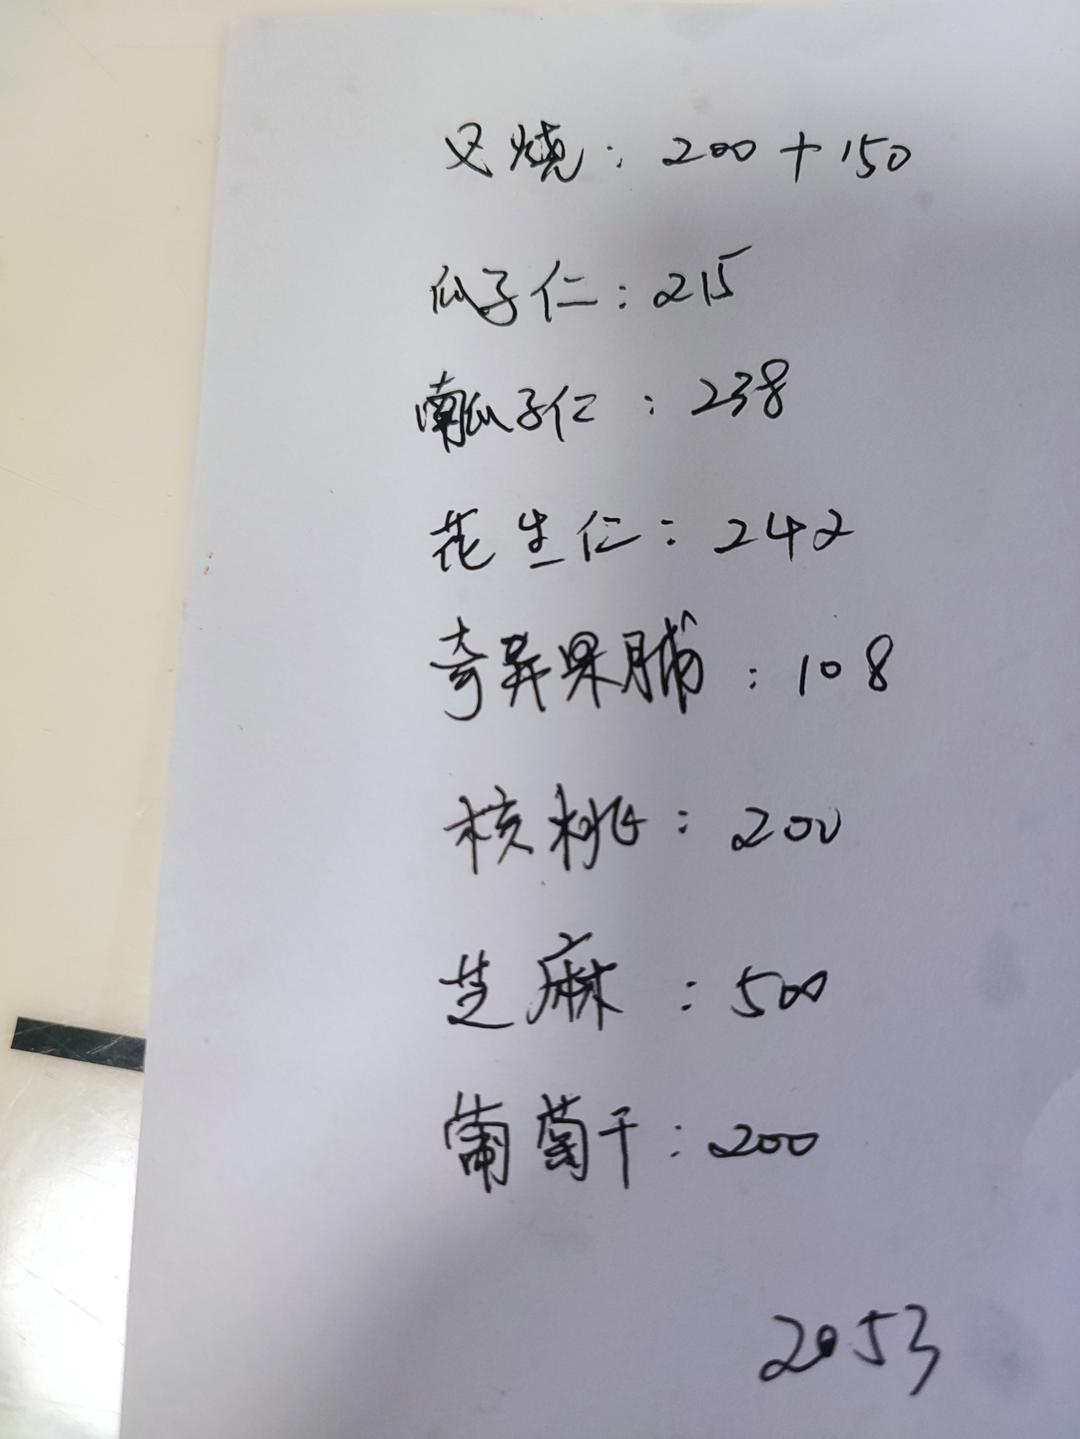 叉烧：200+150
瓜子仁：215
南瓜子仁：238
花生仁：242
奇异果脯：108
核桃：200
芝麻：500
葡萄干：200
2053